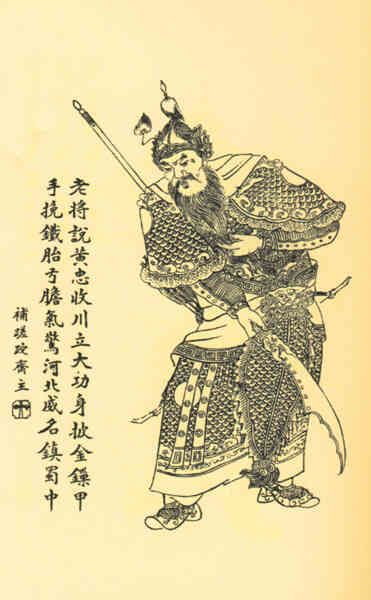 老将說黄忠收川立大功身披金鏁甲
手挽鐵胎弓膽氣驚河北威名鎮蜀中
補蹉跎齋主